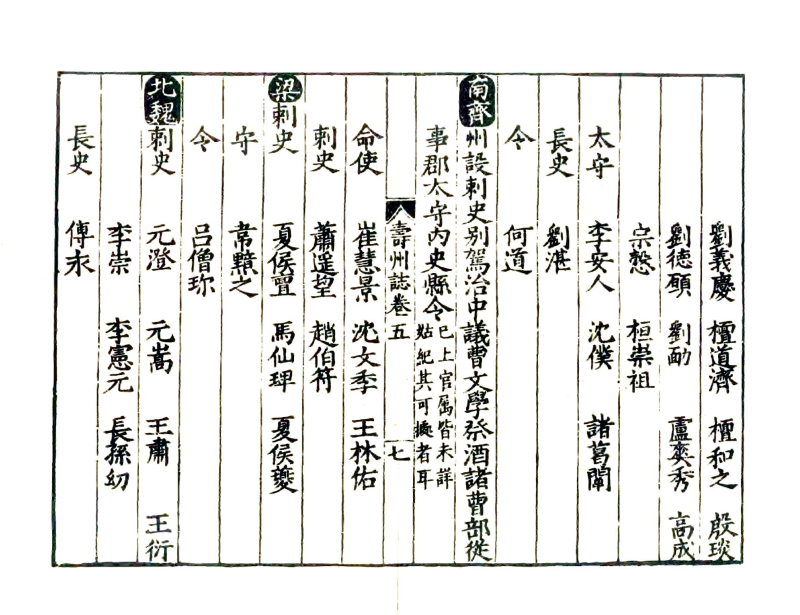 劉義慶 檀道濟 檀和之 殷琰
劉德願 劉勔 盧奭秀 高成
宗慤 桓崇祖
太守 李安人 沈僕 諸葛闡
長史 劉湛
令 何道
南齊 州設刺史別駕治中議曹文學祭酒諸曹部從
事郡太守內史縣令 已上官属皆未詳
姑紀其可據者耳
壽州誌卷五 七
命使 崔慧景 沈文季 王林佑
刺史 蕭遥望 趙伯符
梁 刺史 夏侯亶 馬仙琕 夏侯夔
守 韋黯之
令 吕僧珎
北魏 刺史 元澄 元嵩 王肅 王衍
李崇 李憲元 長孫幼
長史 傅永